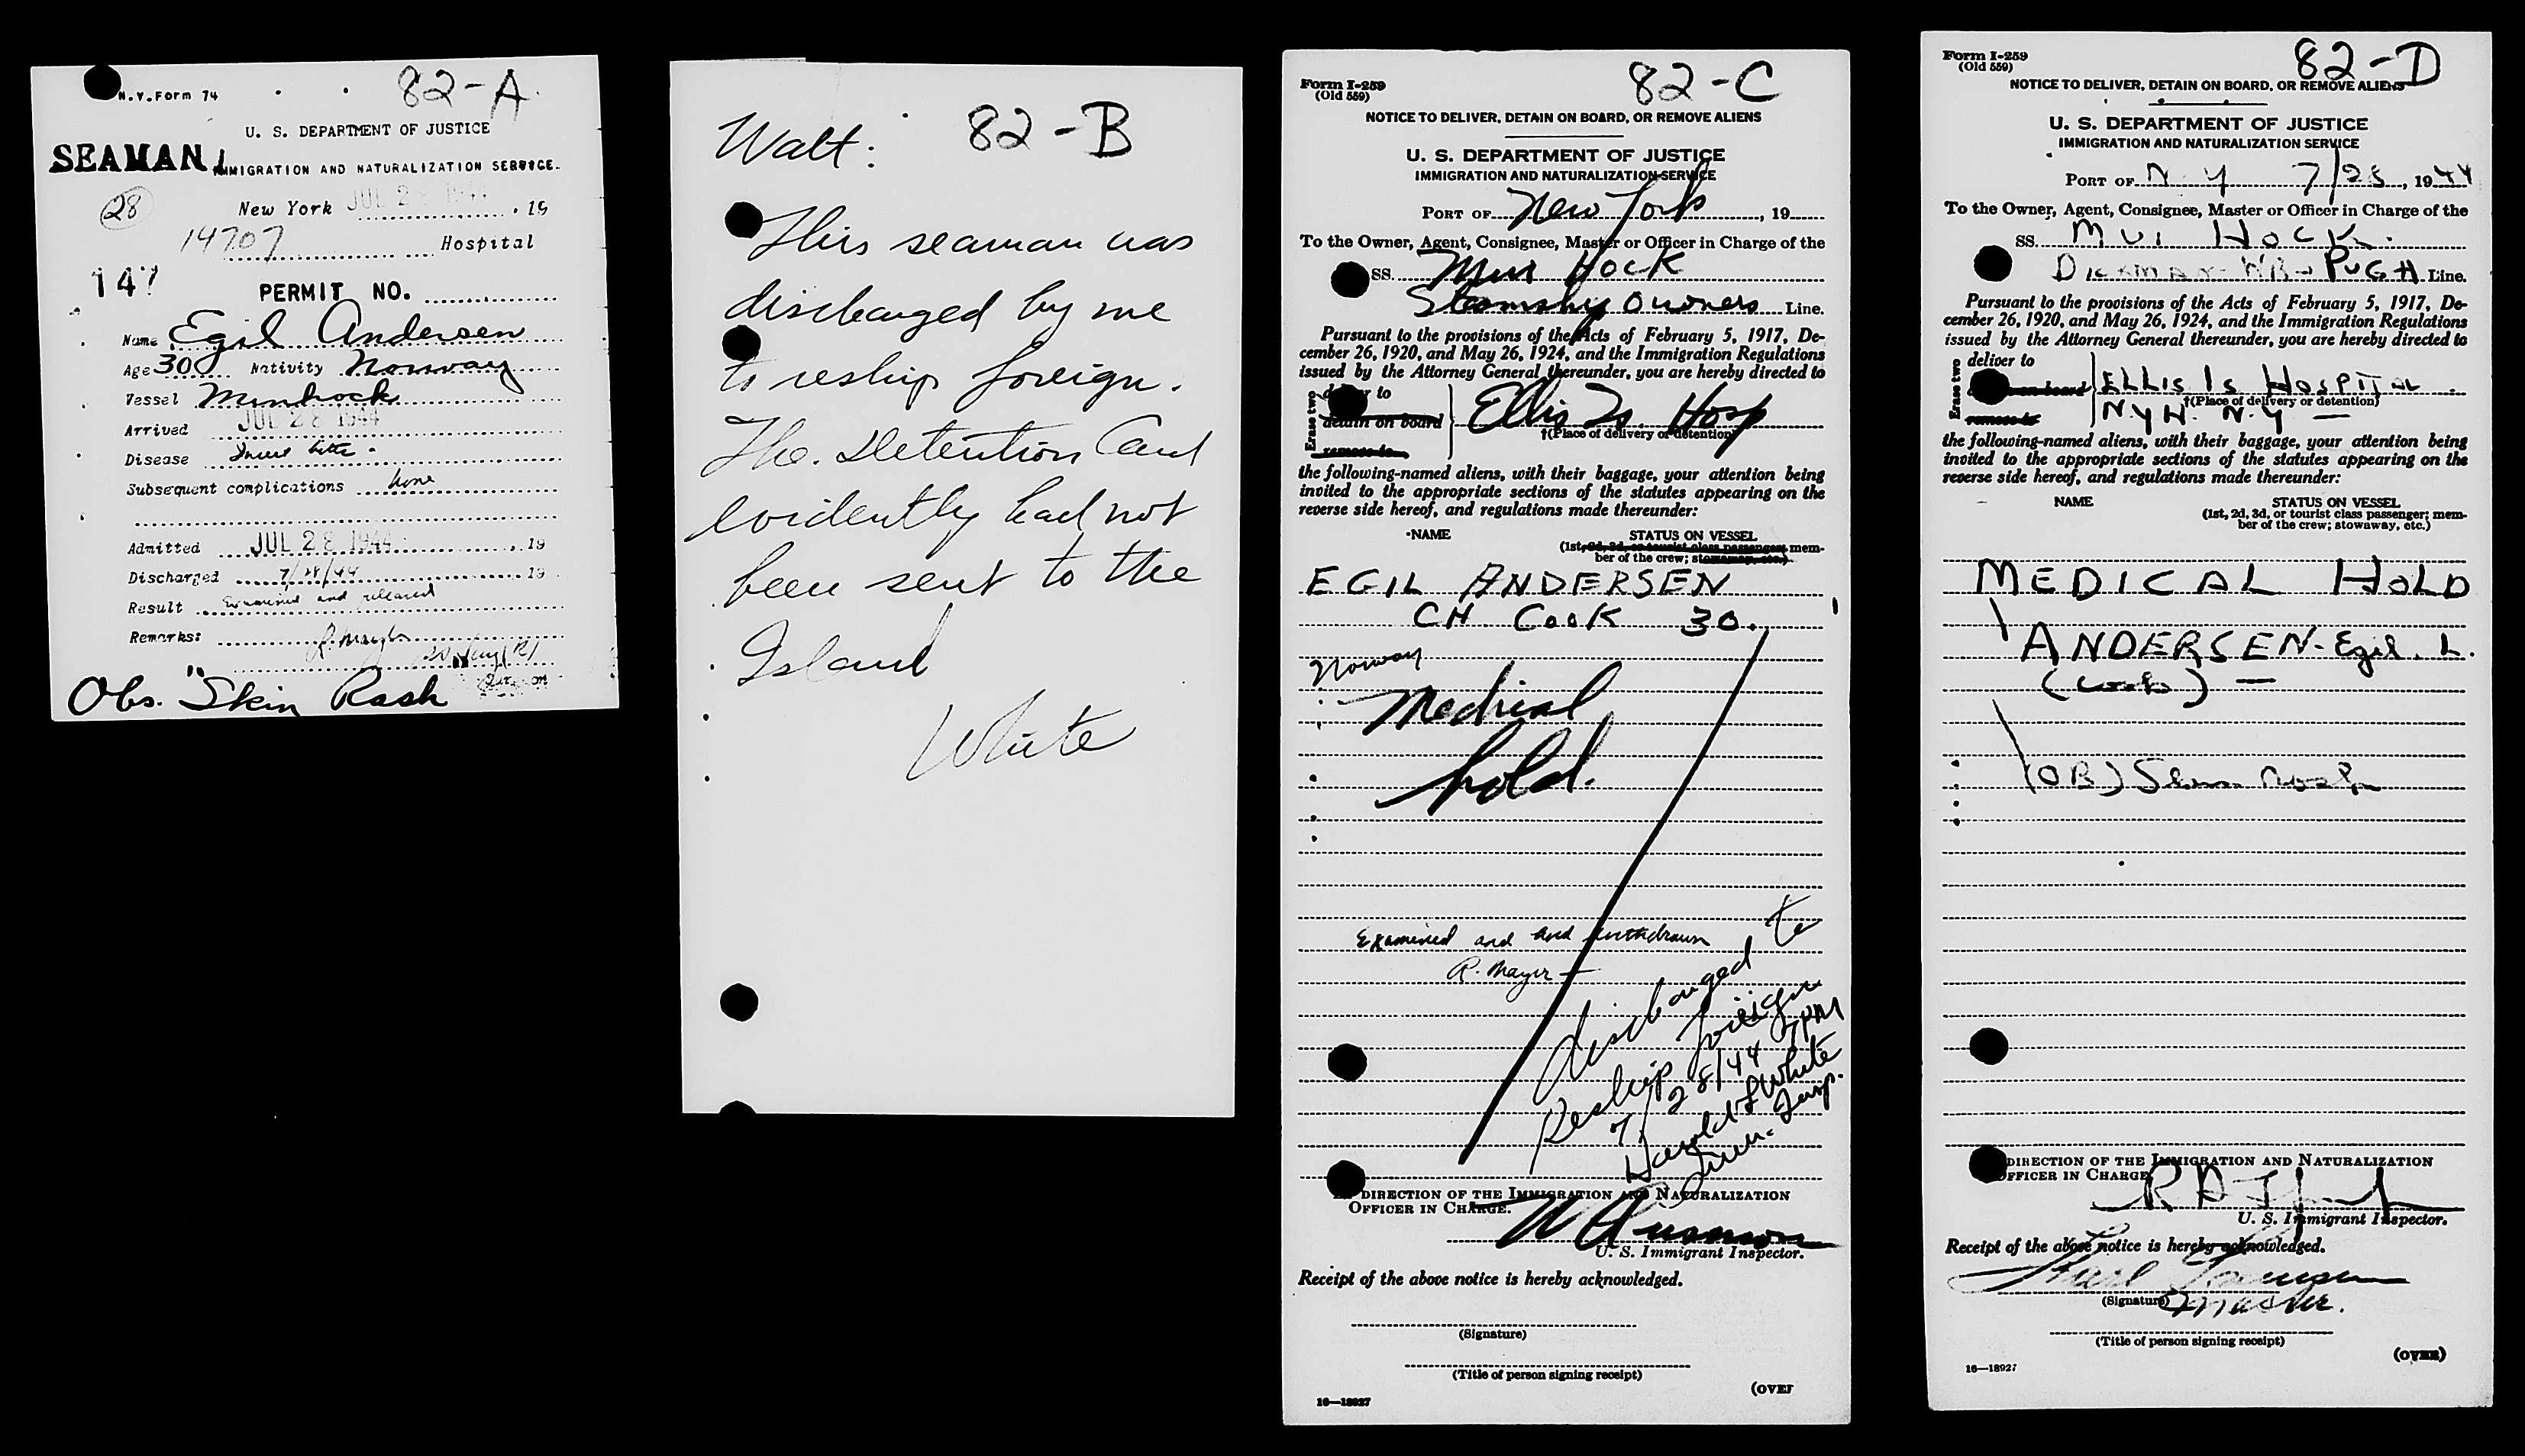 N.Y. Form 74
82-A
U. S. DEPARTMENT OF JUSTICE
SEAMAN
IMMIGRATION AND NATURALIZATION SERVICE.
28
New York JUL 28 1944 , 19
14707 Hospital
147
PERMIT NO.
Name Egil Andersen
Age 30 Nativity Norway
Vessel
Arrived JUL 28 1944
Disease Insect bite.
Subsequent complications None
Admitted JUL 28 1944 , 19
Discharged 7/28/44 19
Result Examined and released
Remarks: R. Mayer
Surgeon
Obs. "Skin Rash
Walt: 82-B
This seaman was
discharged by me
to reship foreign.
The Detention Card
evidently had not
been sent to the
Island
White
Form I-259
(Old 559)
82-C
NOTICE TO DELIVER, DETAIN ON BOARD, OR REMOVE ALIENS
U. S. DEPARTMENT OF JUSTICE
IMMIGRATION AND NATURALIZATION SERVICE
PORT OF New York, 19
To the Owner, Agent, Consignee, Master or Officer in Charge of the
SS. Mui Hock
Steamship Owners Line.
Pursuant to the provisions of the Acts of February 5, 1917, De-
cember 26, 1920, and May 26, 1924, and the Immigration Regulations
issued by the Attorney General thereunder, you are hereby directed to
Erase two
deliver to
detain on board
remove to
Ellis Is. Hosp
†(Place of delivery or detention)
the following-named aliens, with their baggage, your attention being
invited to the appropriate sections of the statutes appearing on the
reverse side hereof, and regulations made thereunder:
NAME STATUS ON VESSEL
(1st, 2d, 3d, or tourist class passenger; mem-
ber of the crew; stowaway, etc.)
EGIL ANDERSEN
CH COOK 30.
Norway
Medical
hold.
Examined and and withdrawn
R. Mayer
discharged to
Reship foreign
7/28/44 7PM
Harold F White
Imm. Insp.
DIRECTION OF THE IMMIGRATION AND NATURALIZATION
OFFICER IN CHARGE.
U. S. Immigrant Inspector.
Receipt of the above notice is hereby acknowledged.
(Signature)
(Title of person signing receipt)
(OVER
16—18927
Form I-259
(Old 559)
82-D
NOTICE TO DELIVER, DETAIN ON BOARD, OR REMOVE ALIENS
U. S. DEPARTMENT OF JUSTICE
IMMIGRATION AND NATURALIZATION SERVICE
PORT OF N Y 7/28, 1944
To the Owner, Agent, Consignee, Master or Officer in Charge of the
SS. MUI HOCK.
PUGH Line.
Pursuant to the provisions of the Acts of February 5, 1917, De-
cember 26, 1920, and May 26, 1924, and the Immigration Regulations
issued by the Attorney General thereunder, you are hereby directed to
Erase two
deliver to
on board
remove to
ELLIS IS HOSPITAL
†(Place of delivery or detention)
NYH. N.Y —
the following-named aliens, with their baggage, your attention being
invited to the appropriate sections of the statutes appearing on the
reverse side hereof, and regulations made thereunder:
NAME STATUS ON VESSEL
(1st, 2d, 3d, or tourist class passenger; mem-
ber of the crew; stowaway, etc.)
MEDICAL HOLD
ANDERSEN - Egil. L.
(cook) —
(OB)
DIRECTION OF THE IMMIGRATION AND NATURALIZATION
OFFICER IN CHARGE
U. S. Immigrant Inspector.
Receipt of the above notice is hereby acknowledged.
(Signature) Master.
(Title of person signing receipt)
(OVER)
16—18927